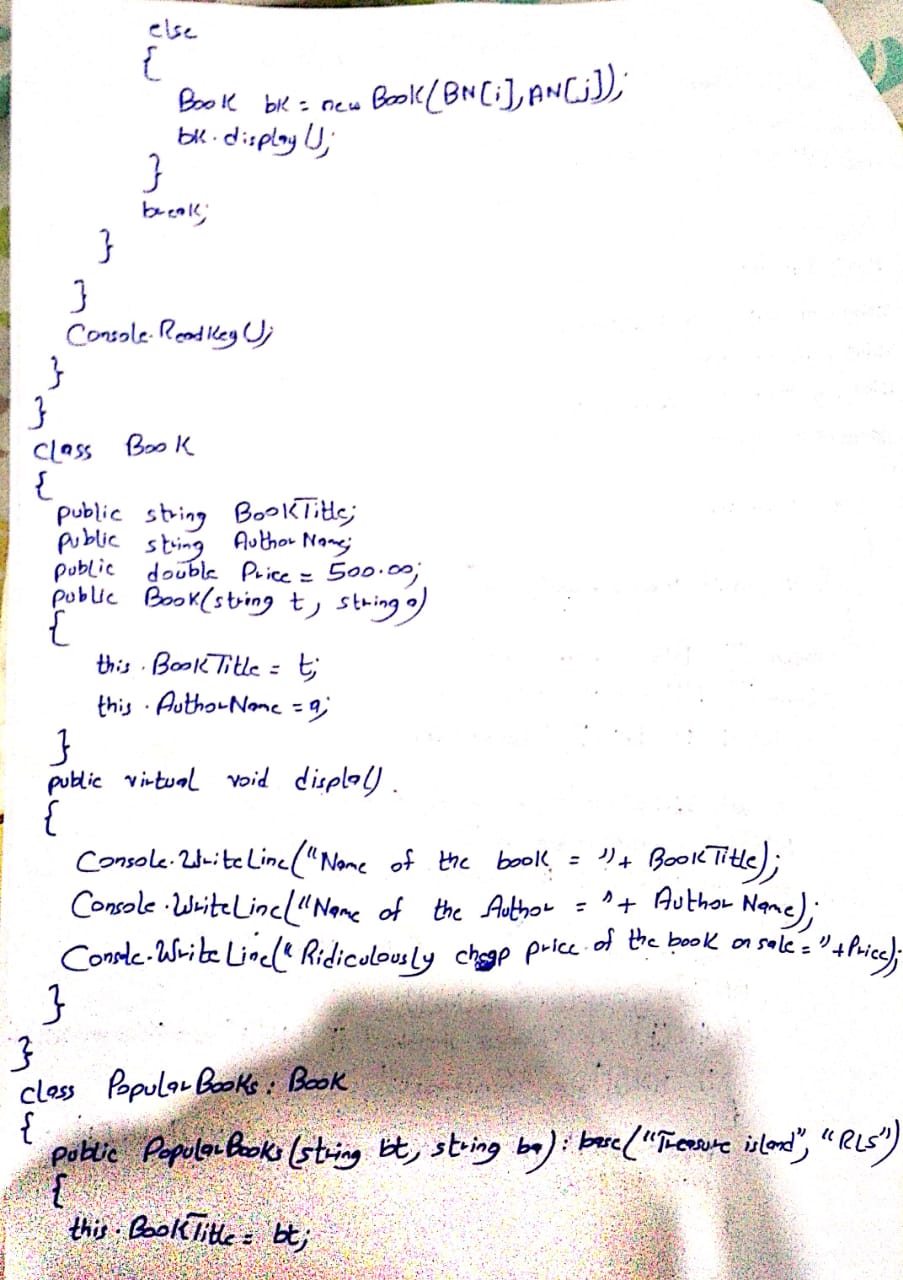 else
{
Book bk = new Book(BN[i], AN[j]);
bk.display();
}
break;
}
}
Console.ReadKey();
}
}
class Book
{
public string BookTitle;
public string AuthorName;
public double Price = 500.00;
public Book(string t, string a)
{
this.BookTitle = t;
this.AuthorName = a;
}
public virtual void displa().
{
Console.WriteLine("Name of the book = "+ BookTitle);
Console.WriteLine("Name of the Author = "+ AuthorName);
Console.WriteLine("Ridiculously cheap price of the book on sale = "+Price);
}
}
class PopularBooks : Book
{
public PopularBooks(string bt, string ba) : base("Treasure island", "RLS")
{
this.BookTitle = bt;